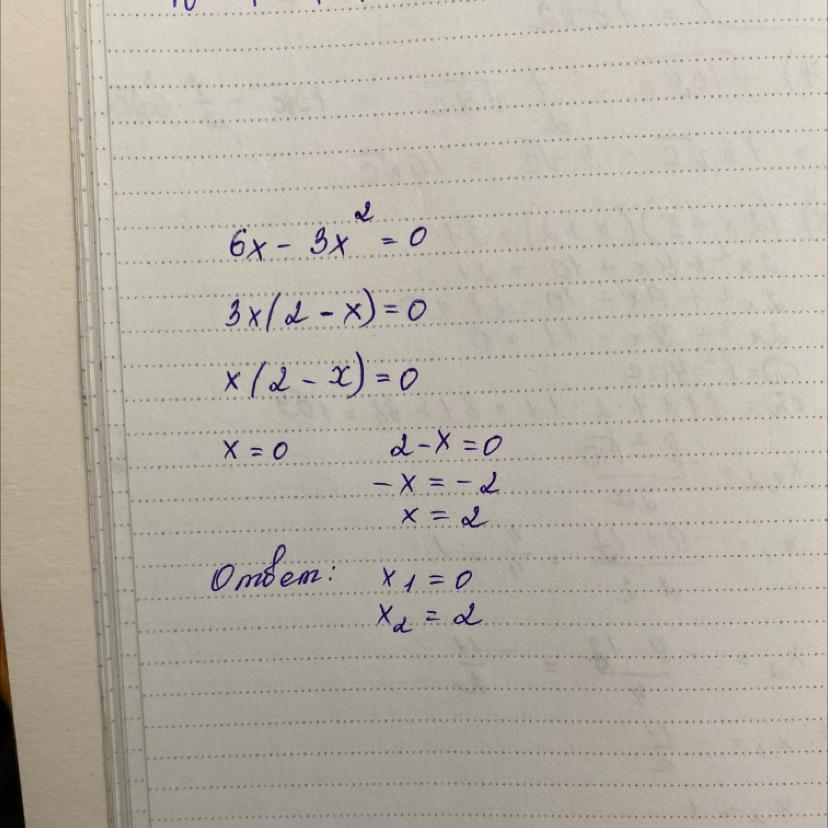 6x - 3x² = 0
3x(2 - x) = 0
x(2 - x) = 0
x = 0 2 - x = 0
- x = - 2
x = 2
Ответ: x₁ = 0
x₂ = 2